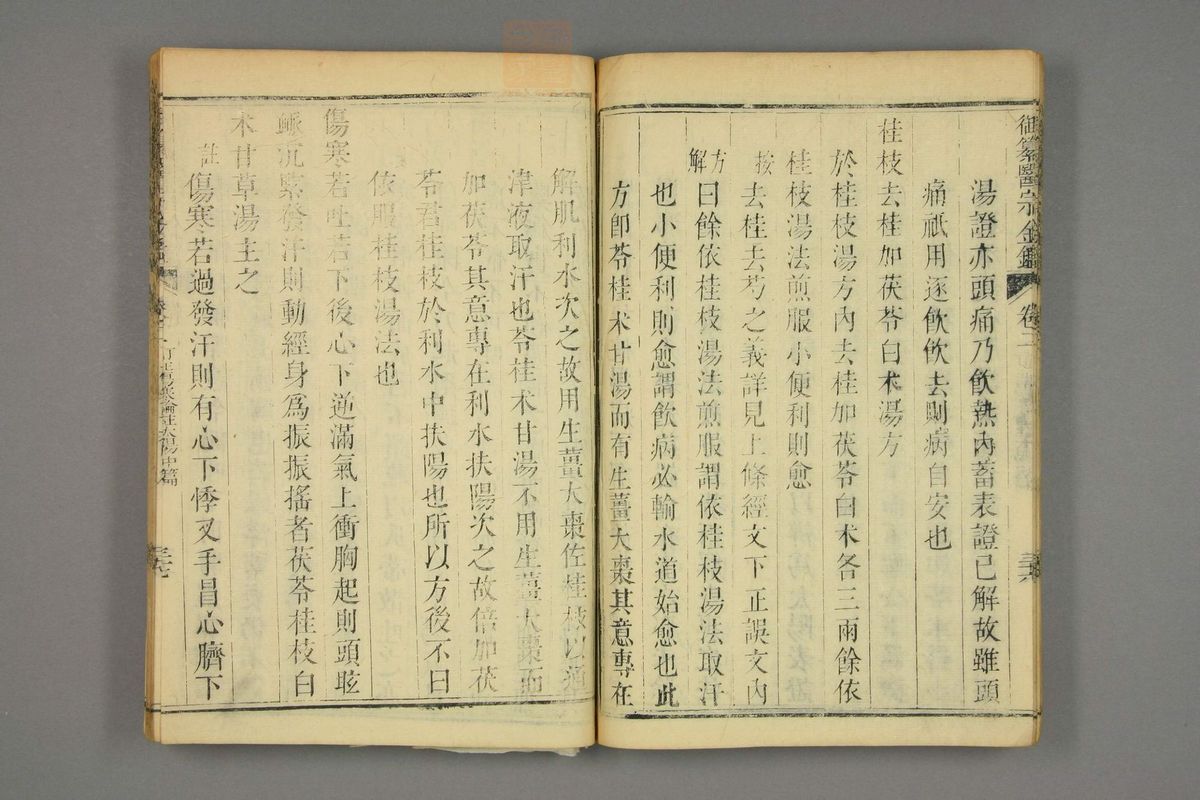 御纂醫宗金鑑 卷二 三六
湯證亦頭痛乃飲熱內蓄表證已解故雖頭
痛祇用逐飲飲去則病自安也
桂枝去桂加茯苓白朮湯方
於桂枝湯方內去桂加茯苓白朮各三兩餘依
桂枝湯法煎服小便利則愈
按去桂去芍之義詳見上條經文下正誤文內
方解曰餘依桂枝湯法煎服謂依桂枝湯法取汗
也小便利則愈謂飲病必輸水道始愈也此
方卽苓桂朮甘湯而有生薑大棗其意專在
解肌利水次之故用生薑大棗佐桂枝以通
津液取汗也苓桂朮甘湯不用生薑大棗而
加茯苓其意專在利水扶陽次之故倍加茯
苓君桂枝於利水中扶陽也所以方後不曰
依服桂枝湯法也
傷寒若吐若下後心下逆滿氣上衝胸起則頭眩
脈沉緊發汗則動經身爲振振搖者茯苓桂枝白
朮甘草湯主之
註傷寒若過發汗則有心下悸叉手冒心臍下
訂正傷寒論註太陽中篇 三七